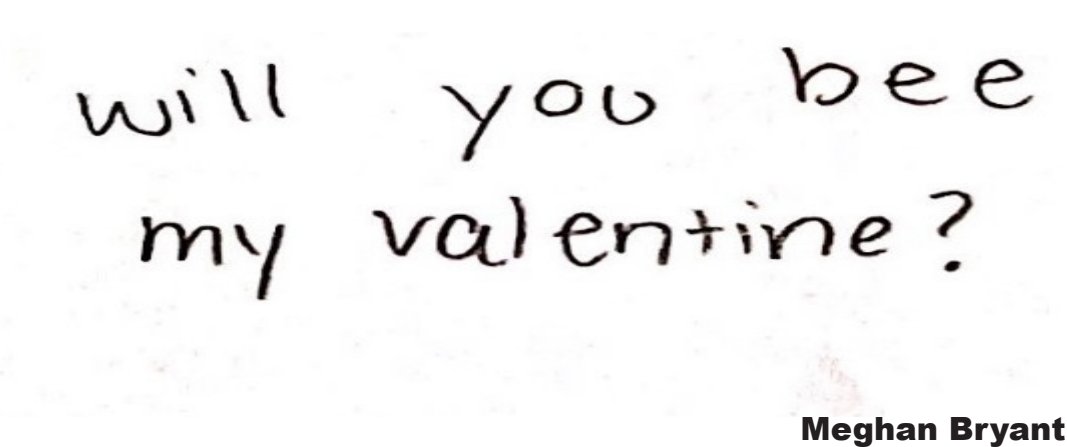 will you bee
my valentine?
Meghan Bryant